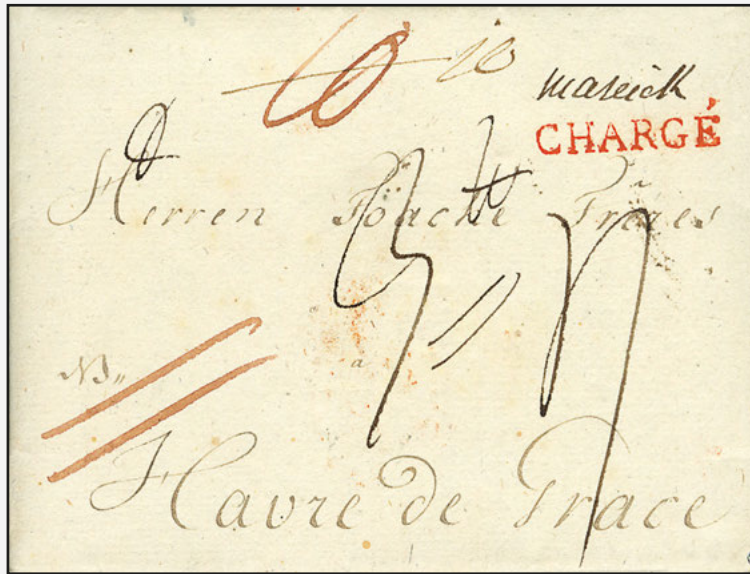 10
maseick
CHARGÉ
Herren Föache Freres
NB„
a
Havre de Grace